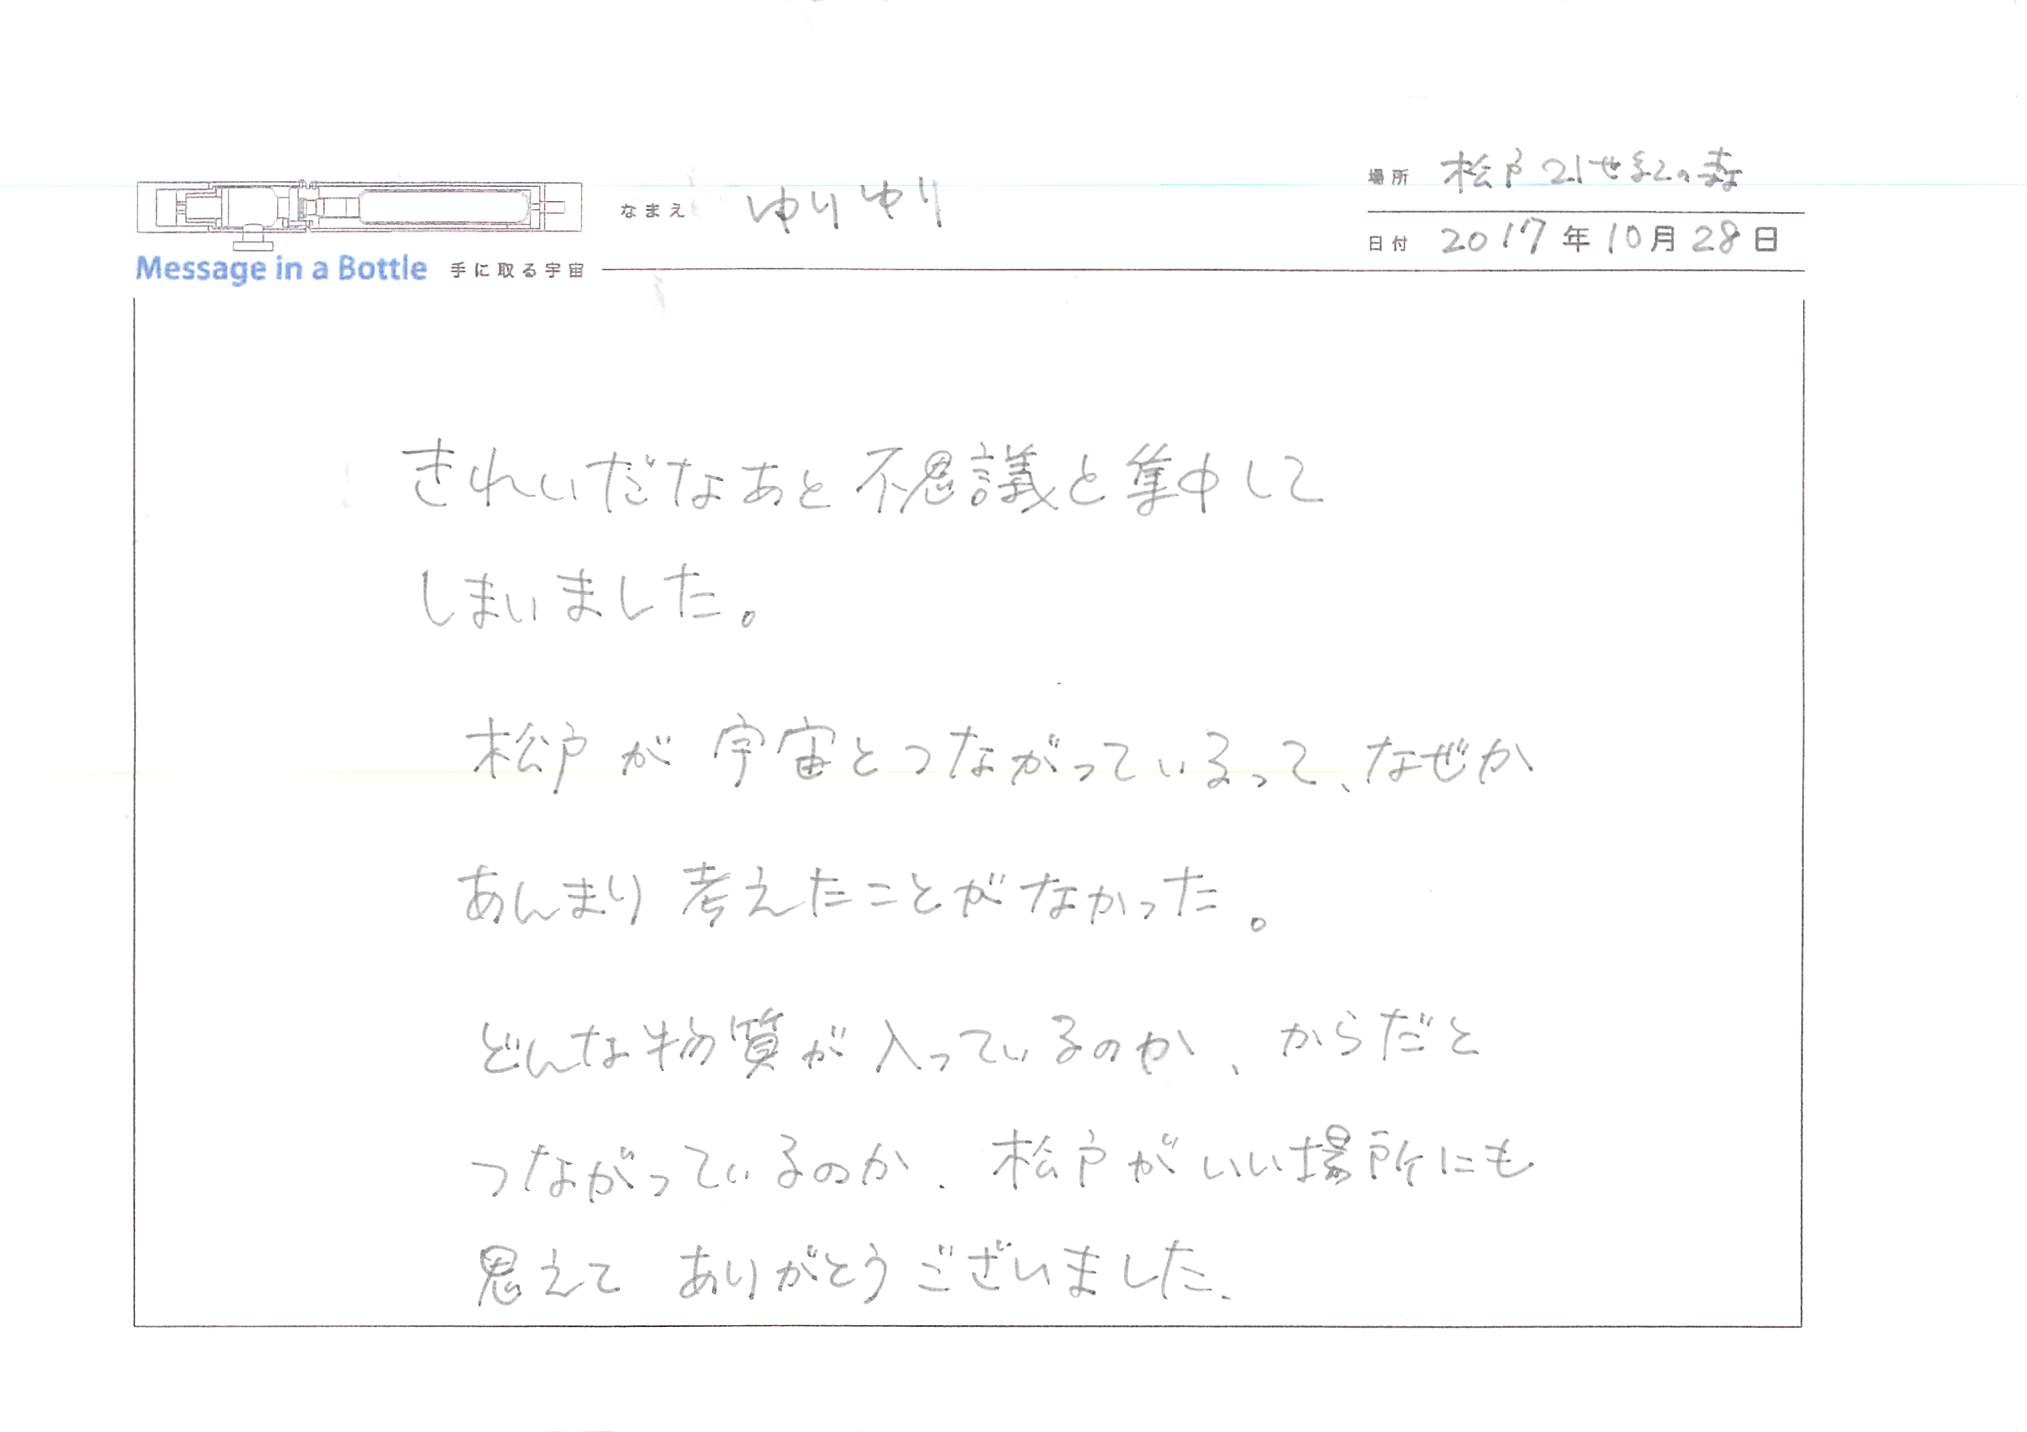 場所 松戸21世紀の森
なまえ ゆりゆり
日付 2017年10月28日
Message in a Bottle 手に取る宇宙
きれいだなあと不思議と集中して
しまいました。
松戸が宇宙とつながっているって、なぜか
あんまり考えたことがなかった。
どんな物質が入っているのか、からだと
つながっているのか、松戸がいい場所にも
思えて ありがとうございました、